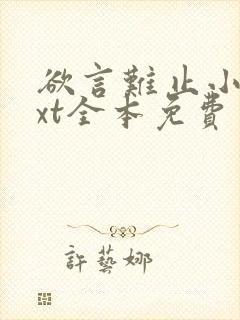 欲言難止小
xt全本免費
許藝娜